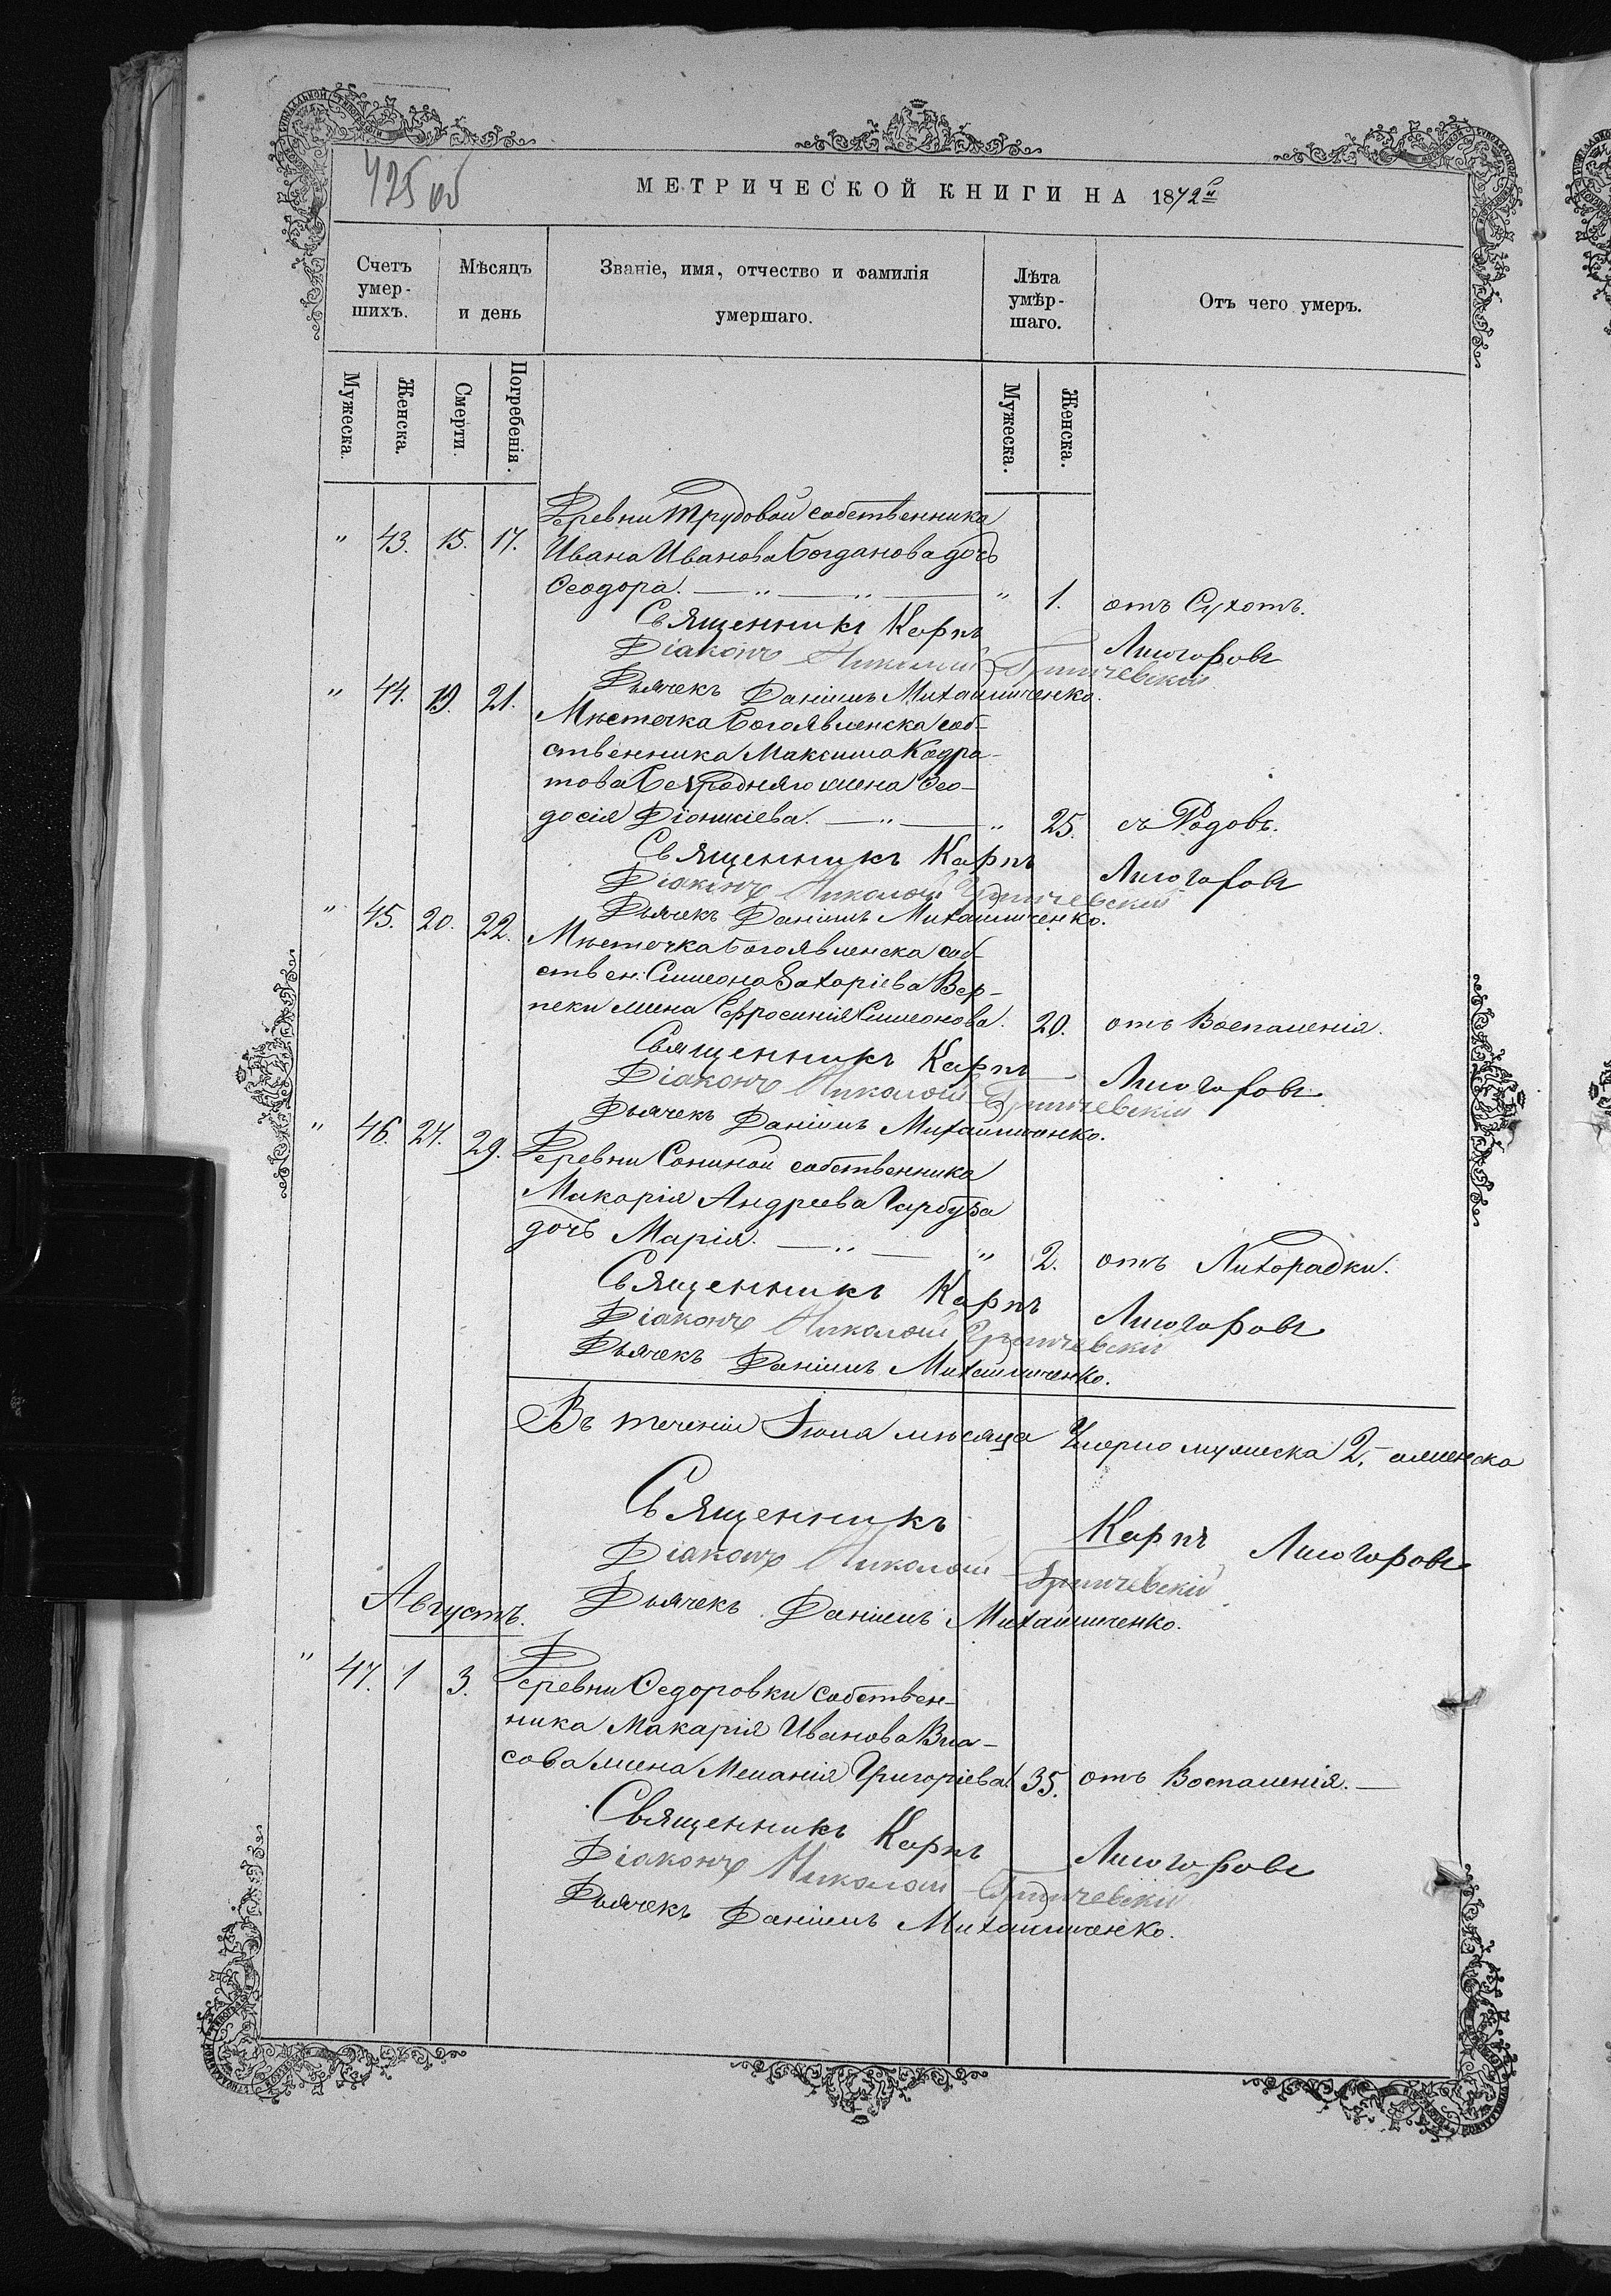 425 об
МЕТРИЧЕСКОЙ КНИГИ НА 1872й
Счетъ умер-шихъ.
Мѣсяцъ и день
Званіе, имя, отчество и фамилія умершаго.
Лѣта умѣр-шаго.
Отъ чего умеръ.
Мужеска. Женска. Смерти. Погребенія. Мужеска. Женска.
Деревни Трудовой собственника
" 43. 15. 17. Ивана Иванова Богданова дочь
Ѳеодора. — " — " — " 1. отъ Сухотъ.
Священникъ Карпъ Лисогоровъ
Діаконъ Николай
Дьячекъ Даніилъ Михайличенко.
" 44. 19. 21. Мѣстечка Богоявленска соб-
ственника Максима Кодра-
това жена Ѳео-
досія Діонисіева. — " — " 25. съ Родовъ.
Священникъ Карпъ Лисогоровъ
Діаконъ Николай
Дьячекъ Даніилъ Михайличенко.
" 45. 20. 22. Мѣстечка Богоявленска соб-
ствен: Симеона Захаріева Вер-
пеки жена Ефросинія Симеонова. 20. отъ Воспаленія.
Священникъ Карпъ Лисогоровъ
Діаконъ Николай
Дьячекъ Даніилъ Михайличенко.
" 46. 27. 29. Деревни собственника
Макарія Андреева Гарбуза
дочь Марія. — " — " 2. отъ Лихорадки.
Священникъ Карпъ Лисогоровъ
Діаконъ Николай
Дьячекъ Даніилъ Михайличенко.
Въ теченіи Іюля мѣсяца Умерло мужеска 2, – а женска
Священникъ Карпъ Лисогоровъ
Діаконъ Николай
Дьячекъ Даніилъ Михайличенко.
Августъ.
" 47. 1 3. Деревни Ѳедоровки собствен-
ника Макарія Иванова Вла-
сова жена Меланія Григоріева. 35. отъ Воспаленія. —
Священникъ Карпъ Лисогоровъ
Діаконъ Николай
Дьячекъ Даніилъ Михайличенко.